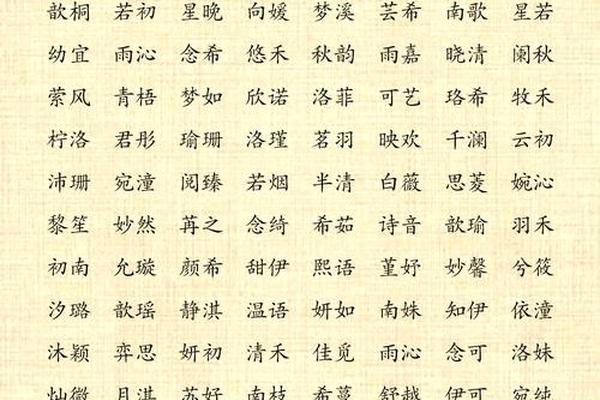 歆桐 若初 星晚 向媛 梦溪 芸希 南歌 星若
幼宜 雨沁 念希 悠禾 秋韵 雨嘉 晓清 阑秋
萦风 青梧 梦如 欣诺 洛菲 可艺 珞希 牧禾
柠洛 君彤 瑜珊 洛瑾 茗羽 映欢 千澜 云初
沛珊 宛潼 阅臻 若烟 半清 白薇 思菱 婉沁
黎笙 妙然 苒之 念绮 希茹 诗音 歆瑜 羽禾
初南 允璇 颜希 甜伊 熙语 堇妤 妙馨 兮筱
汐璐 歆瑶 静淇 温语 妍如 南姝 知伊 依潼
沐颖 弈思 妍初 清禾 佳觅 雨沁 念可 洛妹
灿微 月淇 苏好 南枝 希蔓 舒越 伊可 宛纯